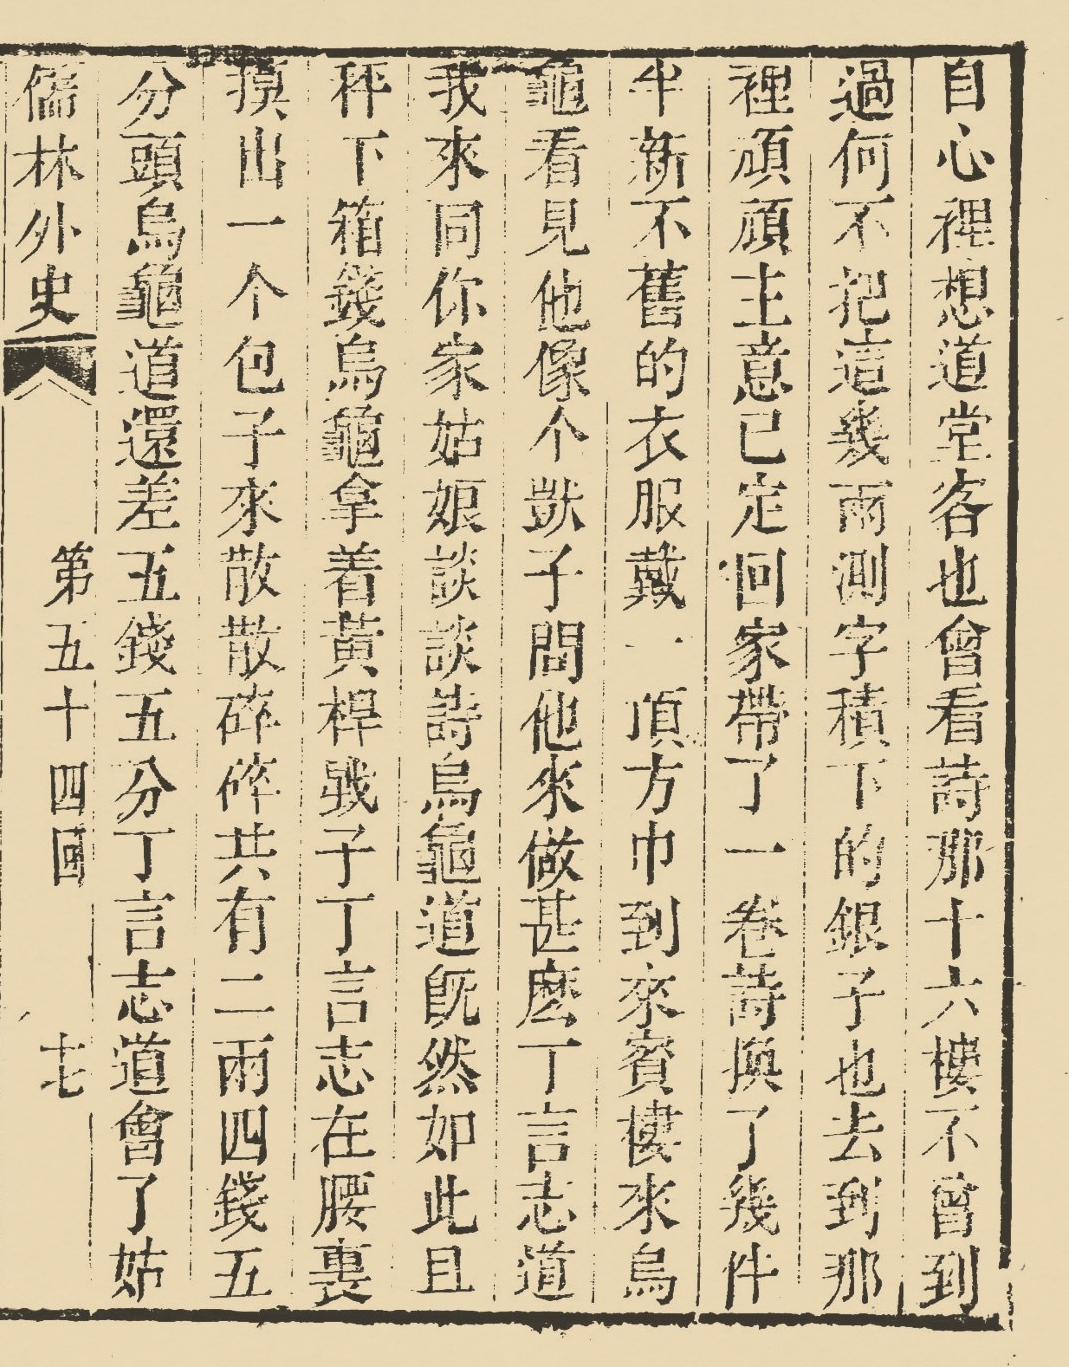 自心裡想道堂客也會看詩那十六樓不曾到
過何不把這幾兩測字積下的銀子也去到那
裡頑頑主意已定回家帶了一卷詩換了幾件
半新不舊的衣服戴一頂方巾到來賓樓來烏
龜看見他像个獃子問他來做甚麽丁言志道
我來同你家姑娘談談詩烏龜道既然如此且
秤下箱錢烏龜拿着黃桿戥子丁言志在腰裏
摸出一个包子來散散碎碎共有二兩四錢五
分頭烏龜道還差五錢五分丁言志道會了姑
儒林外史 第五十四囬 七